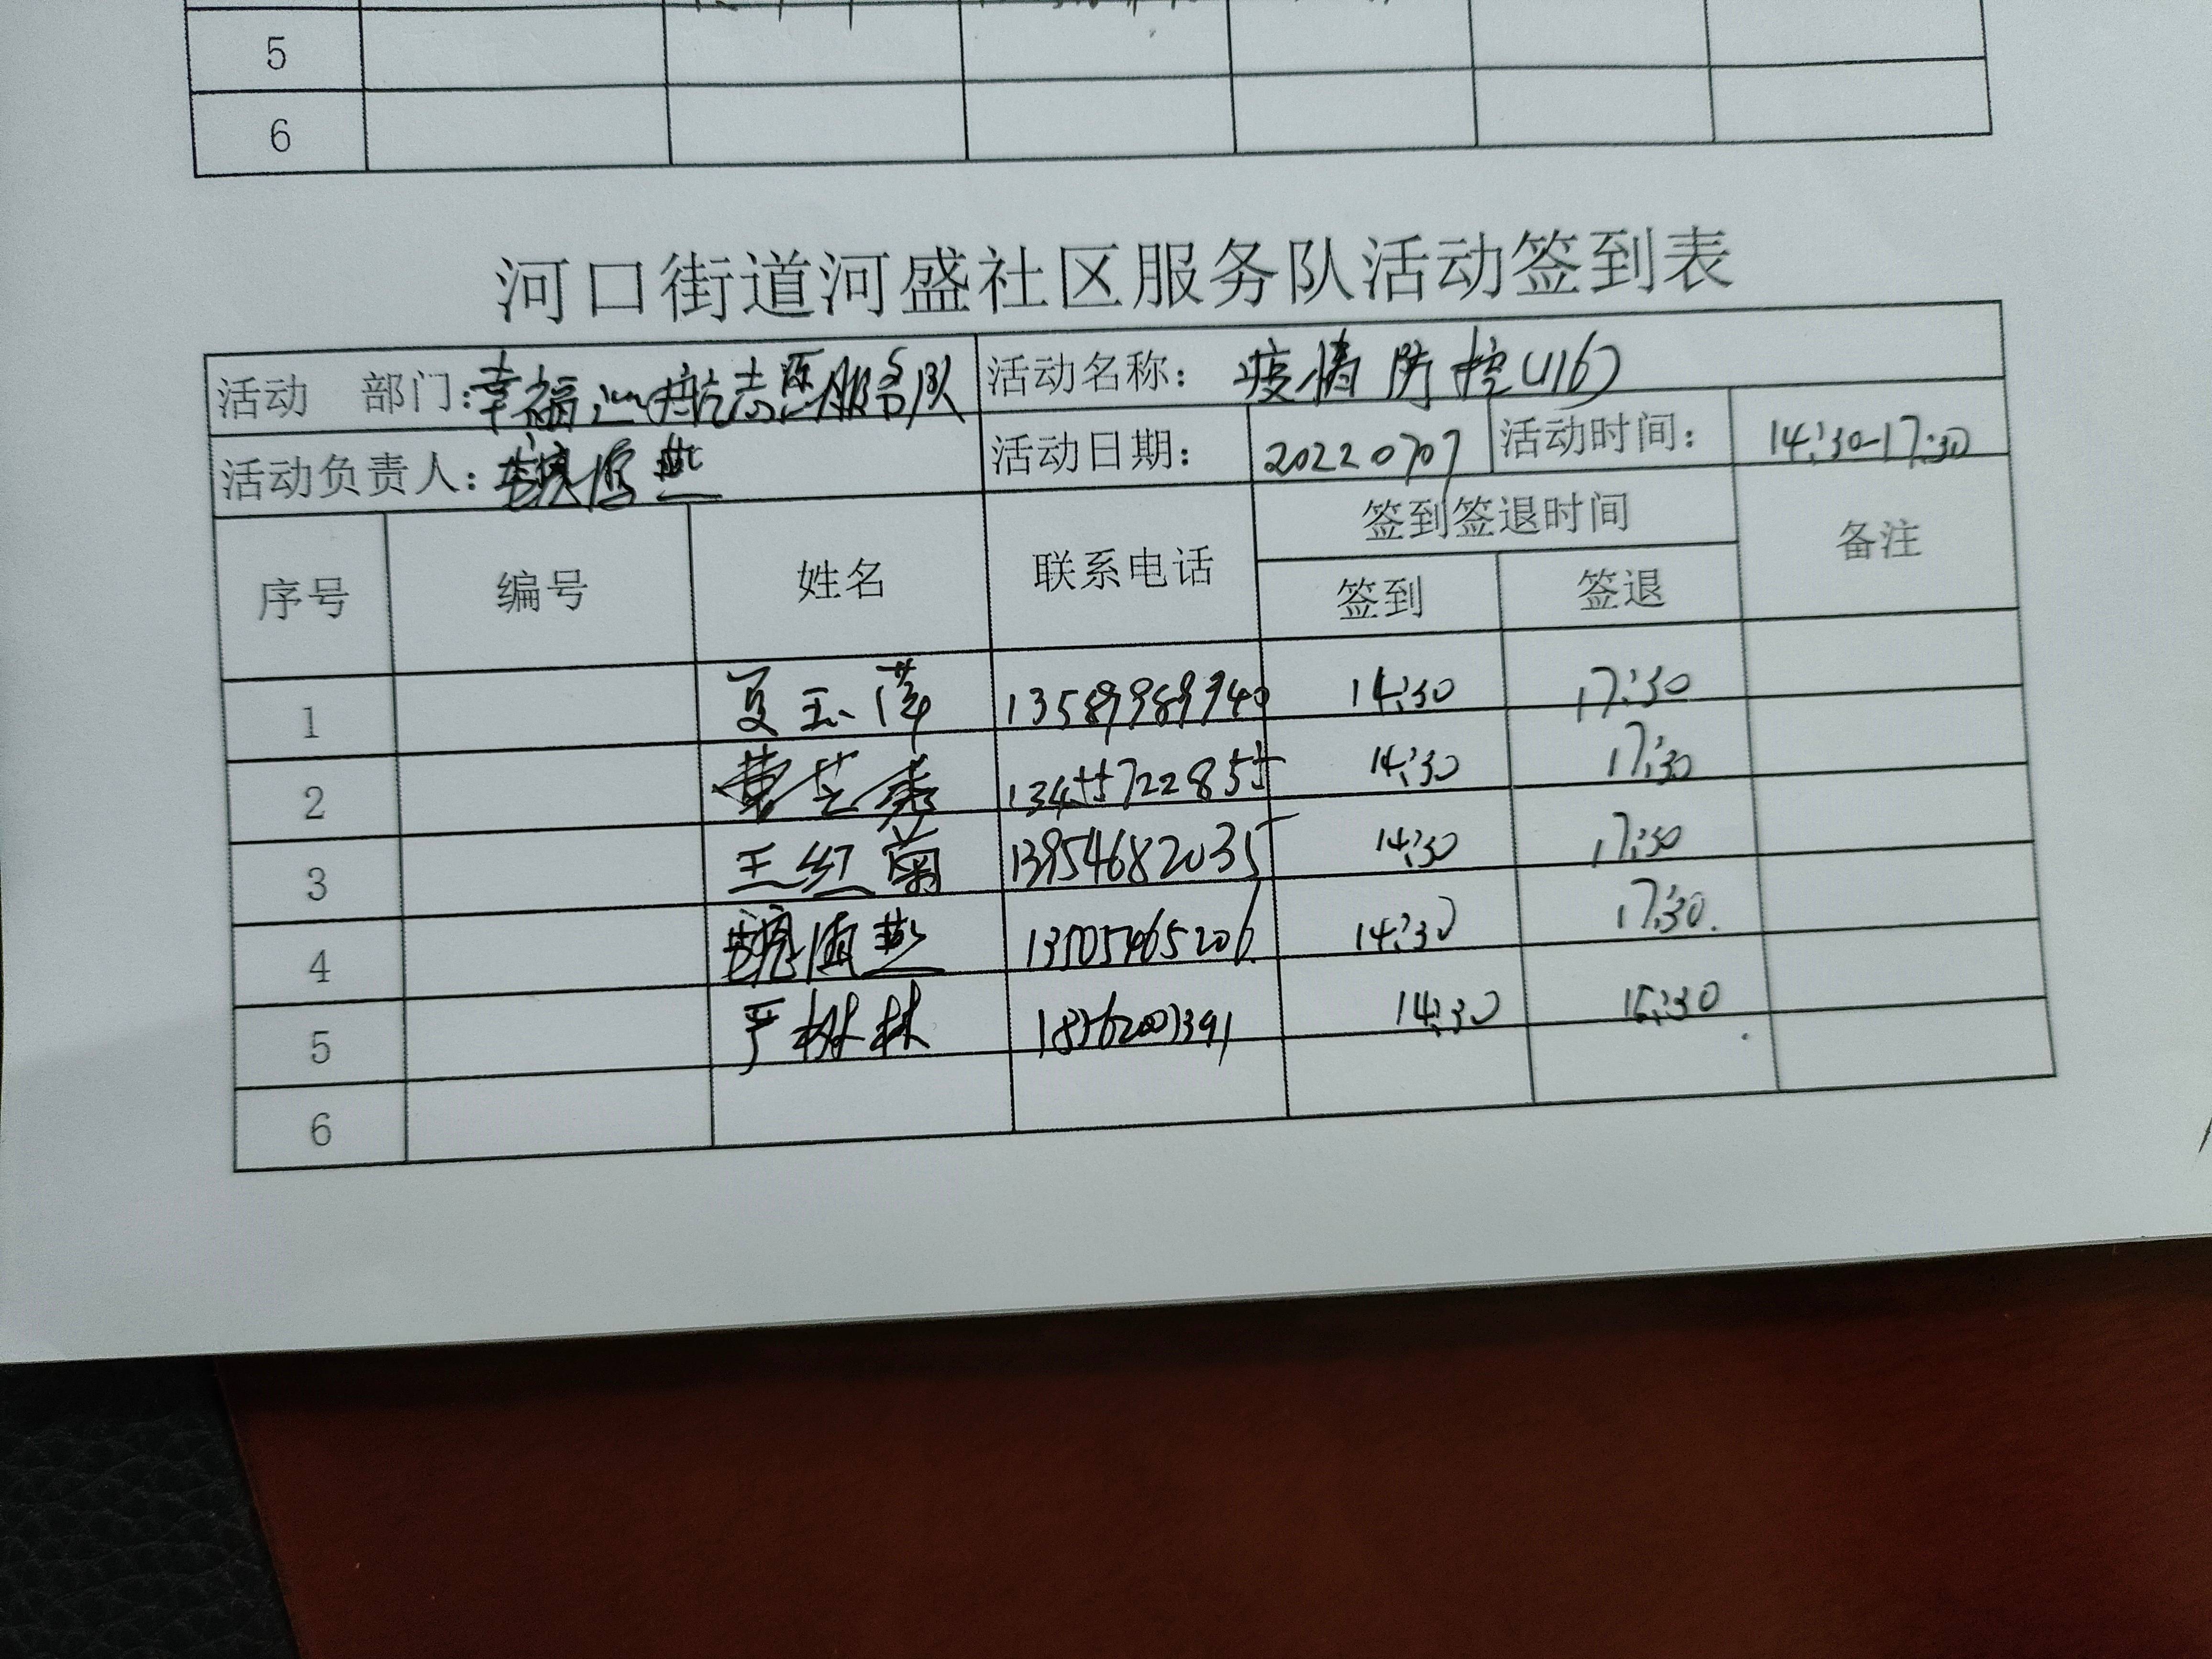 5
6
河口街道河盛社区服务队活动签到表
活动 部门：幸福心航志愿服务队 活动名称： 疫情防控(116)
活动负责人： 活动日期： 20220707 活动时间： 14:30-17:30
序号 编号 姓名 联系电话 签到签退时间 备注
签到 签退
1 夏玉萍 13589989940 14:30 17:30
2 14:30 17:30
3 王红菊 13954682035 14:30 17:30
4 13505465206 14:30 17:30.
5 严树林 14:30
6